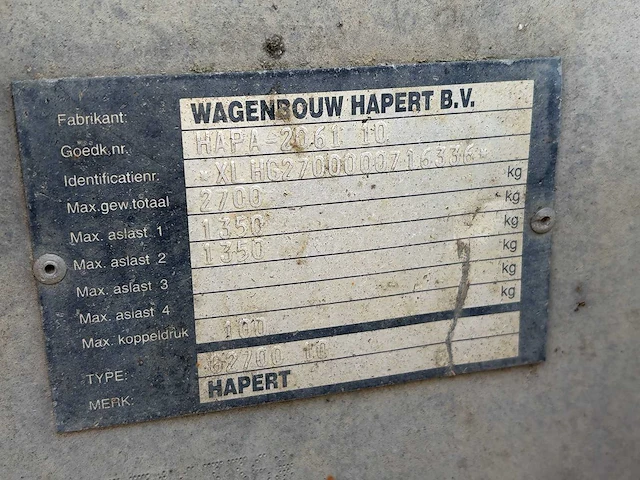 Fabrikant: WAGENBOUW HAPERT B.V.
Goedk.nr. HAPA-2061 10
Identificatienr. *XLHG2700000716336*
Max.gew.totaal 2700 kg
Max. aslast 1 1350 kg
Max. aslast 2 1350 kg
Max. aslast 3 kg
Max. aslast 4 kg
Max. koppeldruk 100
TYPE: G2700 10
MERK: HAPERT